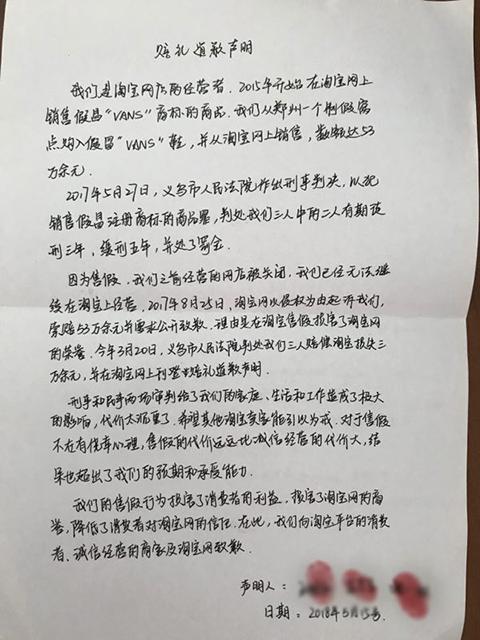 赔礼道歉声明
我们是淘宝网店的经营者. 2015年开始在淘宝网上
销售假冒"VANS"商标的商品. 我们从郑州一个制假窝
点购入假冒"VANS"鞋, 并从淘宝网上销售, 数额达53
万余元.
2017年5月27日, 义乌市人民法院作出刑事判决, 以犯
销售假冒注册商标的商品罪, 判处我们三人中的二人有期徒
刑三年, 缓刑五年, 并处了罚金.
因为售假, 我们之前经营的网店被关闭, 我们已经无法继
续在淘宝上经营. 2017年8月25日, 淘宝网以侵权为由起诉我们,
索赔53万余元并要求公开致歉. 理由是在淘宝售假损害了淘宝网
的荣誉. 今年3月20日, 义乌市人民法院判处我们三人赔偿淘宝损失三
万余元, 并在淘宝网上刊登赔礼道歉声明.
刑事和民事两场审判给了我们的家庭、生活和工作造成了极大
的影响, 代价太沉重了. 希望其他淘宝卖家能引以为戒. 对于售假
不在有侥幸心理, 售假的代价远远比诚信经营的代价大, 结
果也超出了我们的预期和承受能力.
我们的售假行为损害了消费者的利益. 损害了淘宝网的商
誉, 降低了消费者对淘宝网的信任. 在此, 我们向淘宝平台的消费
者、诚信经营的商家及淘宝网致歉.
声明人:
日期: 2018年5月15号.